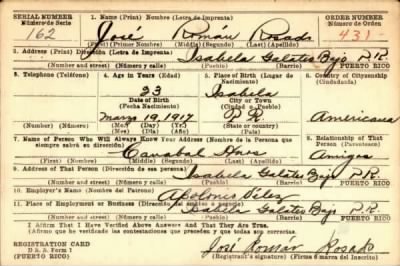 SERIAL NUMBER 1. Name (Print) (Letra de Imprenta) ORDER NUMBER
Número de Serie Número de Orden
162 José Román Rosado 431-
(First) (Primer Nombre) (Middle) (Segundo) (Last) (Apellido)
2. Address (Print) Dirección (Letra de Imprenta)
Isabela Galateo Bajo P.R.
(Number and street) (Número y calle) (Town) (Pueblo) (Barrio) PUERTO RICO
3. Telephone (Teléfono) 4. Age in Years (Edad) 5. Place of Birth (Lugar de Nacimiento) 6. Country of Citizenship (Ciudadanía)
23 Isabela
Date of Birth City or Town
(Fecha Nacimiento) (Ciudad o Pueblo)
Marzo 19, 1917 P R Americana
(Mo.) (Day) (Yr.) (State or country)
(Mes) (Día) (Año) (Estado o país)
7. Name of Person Who Will Always Know Your Address (Nombre de la Persona que siempre sabrá su dirección) 8. Relationship of That Person (Parentesco)
Carvajal Hnos Amigos
(First) (Nombre) (Middle) (Segundo) (Last) (Apellido)
9. Address of That Person (Dirección de esa persona)
Isabela Galateo Bajo P.R.
(Number and street) (Número y calle) (Town) (Pueblo) (Barrio) PUERTO RICO
10. Employer's Name (Nombre del Patrono)
Apolonio Vélez
11. Place of Employment or Business (Dirección del empleo o negocio)
Isabela Galateo Bajo P.R.
(Number and street) (Número y calle) (Town) (Pueblo) (Barrio) PUERTO RICO
I Affirm That I Have Verified Above Answers and That They Are True.
(Afirmo que he verificado las contestaciones que preceden y que todas son correctas.)
REGISTRATION CARD José Roman Rosado
D. S. S. Form 1
(PUERTO RICO) (Registrant's signature) (Firma ó marca del Inscrito)